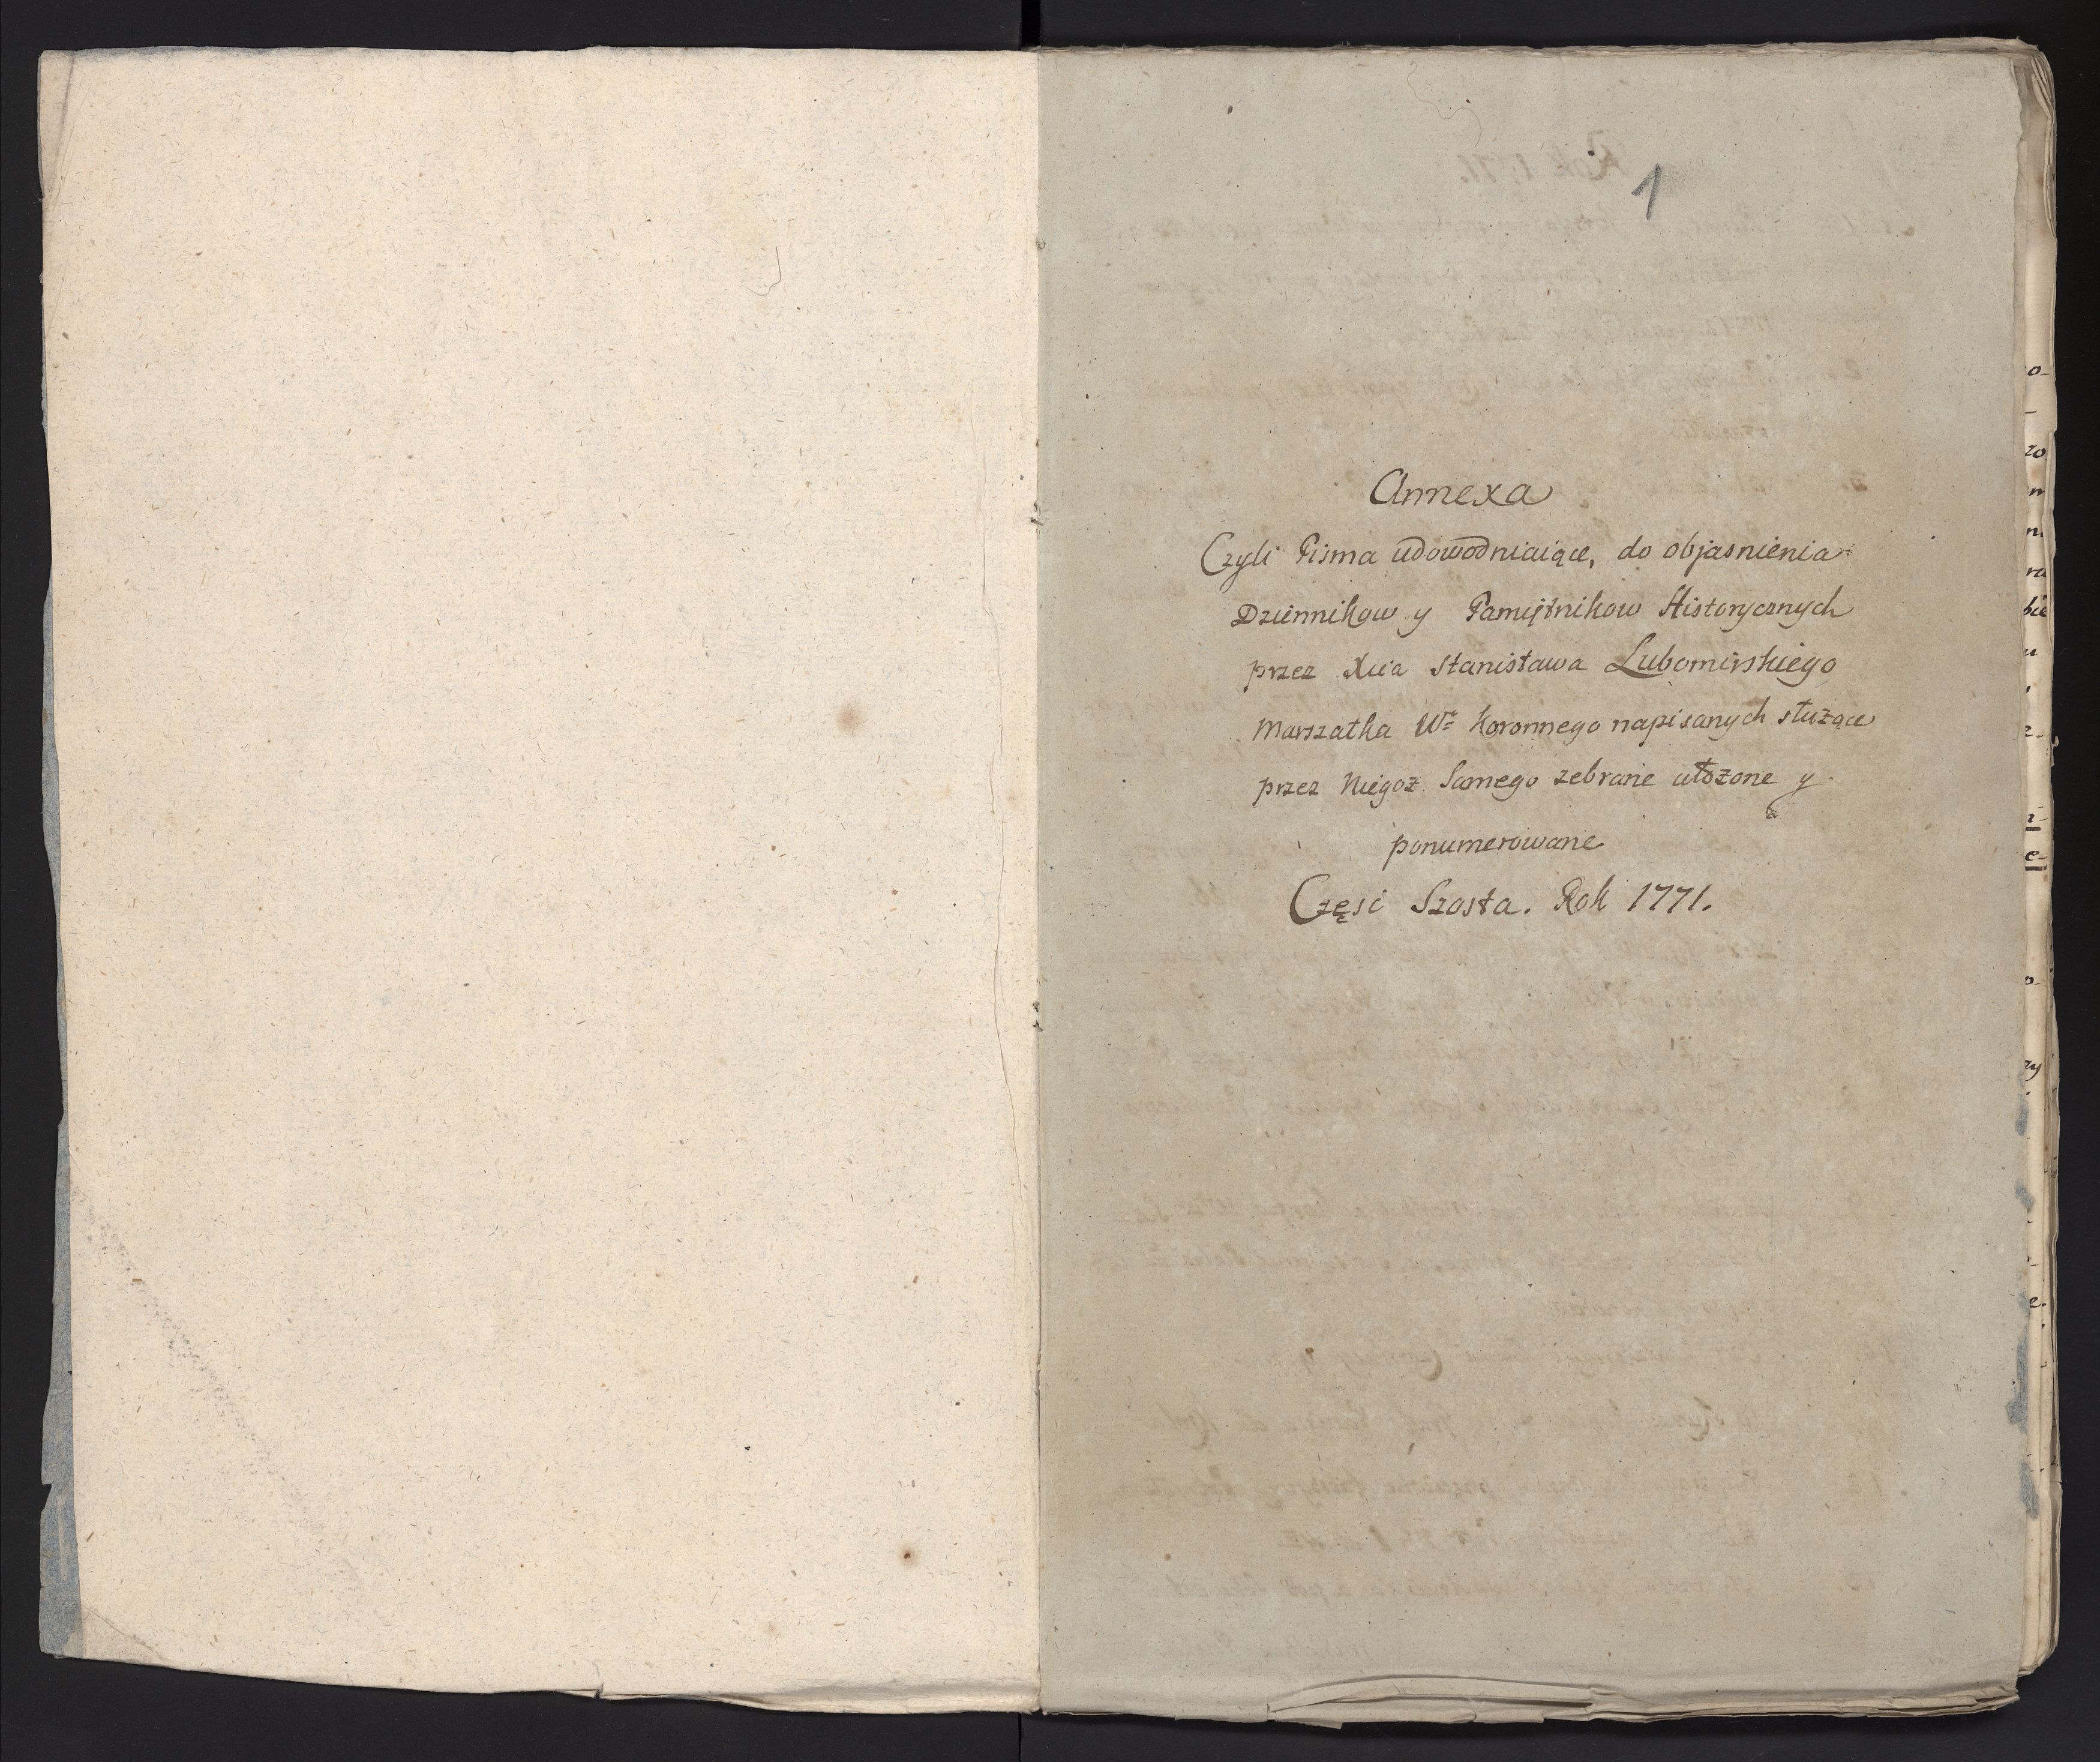 1
Annexa
Czyli Pisma udowodniaiące, do objasnienia
Dziennikow y Pamiętnikow Historycznych
przez Xcia Stanisława Lubomirskiego
Marszałka Wº Koronnego napisanych służące
przez Niegoż Samego zebrane ułożone y
ponumerowane
Częsć Szosta. Rok 1771.